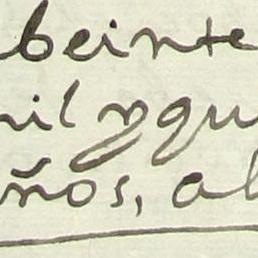 beinte
mil y qu
ños, al